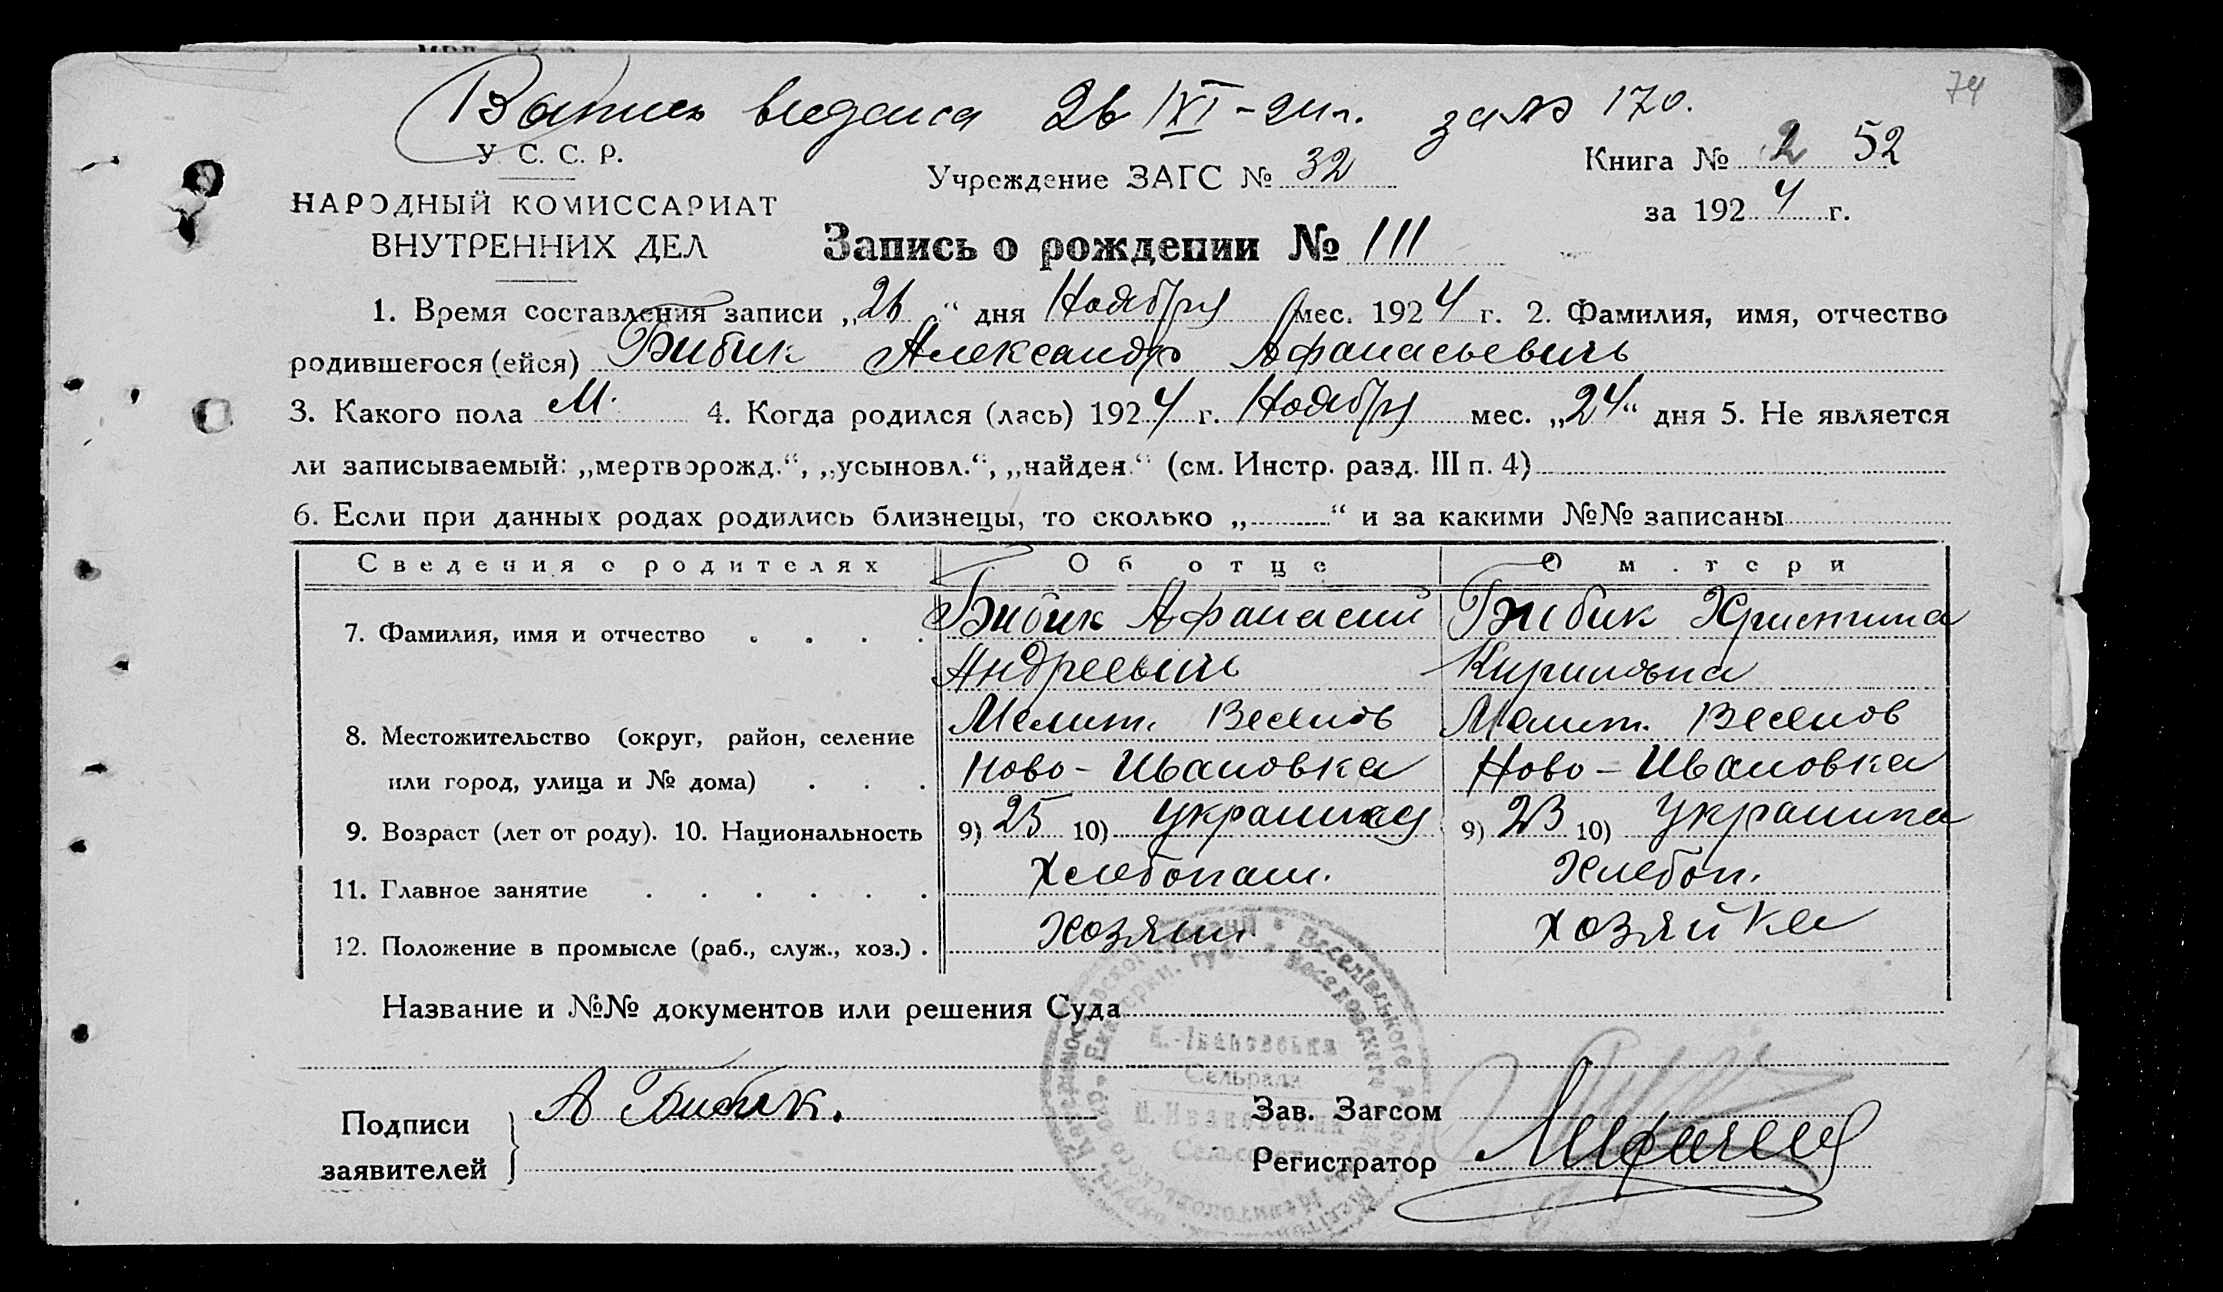 74
выдана 26/XI-24г. за № 170.
У. С. С. Р.
НАРОДНЫЙ КОМИССАРИАТ
ВНУТРЕННИХ ДЕЛ
Учреждение ЗАГС № 32
Книга № 2 52
за 1924 г.
Запись о рождении № 111
1. Время составления записи „26“ дня Ноября мес. 1924 г. 2. Фамилия, имя, отчество
родившегося (ейся) Бибик Александр Афанасьевичь
3. Какого пола М. 4. Когда родился (лась) 1924 г. Ноября мес. „24“ дня 5. Не является
ли записываемый: „мертворожд.“, „усыновл.“, „найден.“ (см. Инстр. разд. III п. 4)
6. Если при данных родах родились близнецы, то сколько „ “ и за какими №№ записаны
Сведения о родителях Об отце О матери
7. Фамилия, имя и отчество . . . . Бибик Афанасий Бибик Христина
Андреевичь Кириловна
8. Местожительство (округ, район, селение Мелит. Веселов Мелит. Веселов
или город, улица и № дома) . . . Ново-Ивановка Ново-Ивановка
9. Возраст (лет от роду). 10. Национальность 9) 25 10) 9) 23 10) Украинка
11. Главное занятие . . . . . . Хлебопаш. Хлебоп.
12. Положение в промысле (раб., служ., хоз.) . Хозяин хозяйка
Название и №№ документов или решения Суда
Н.-Івановська
Сельрада
Н.Ивановский
Сельсовет
Подписи
заявителей
А Бибик.
Зав. Загсом
Регистратор